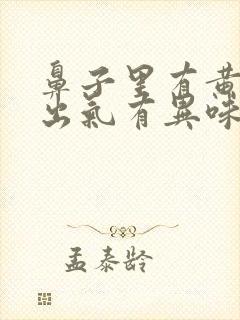 鼻子里有黄
出氣有異味
孟泰龄